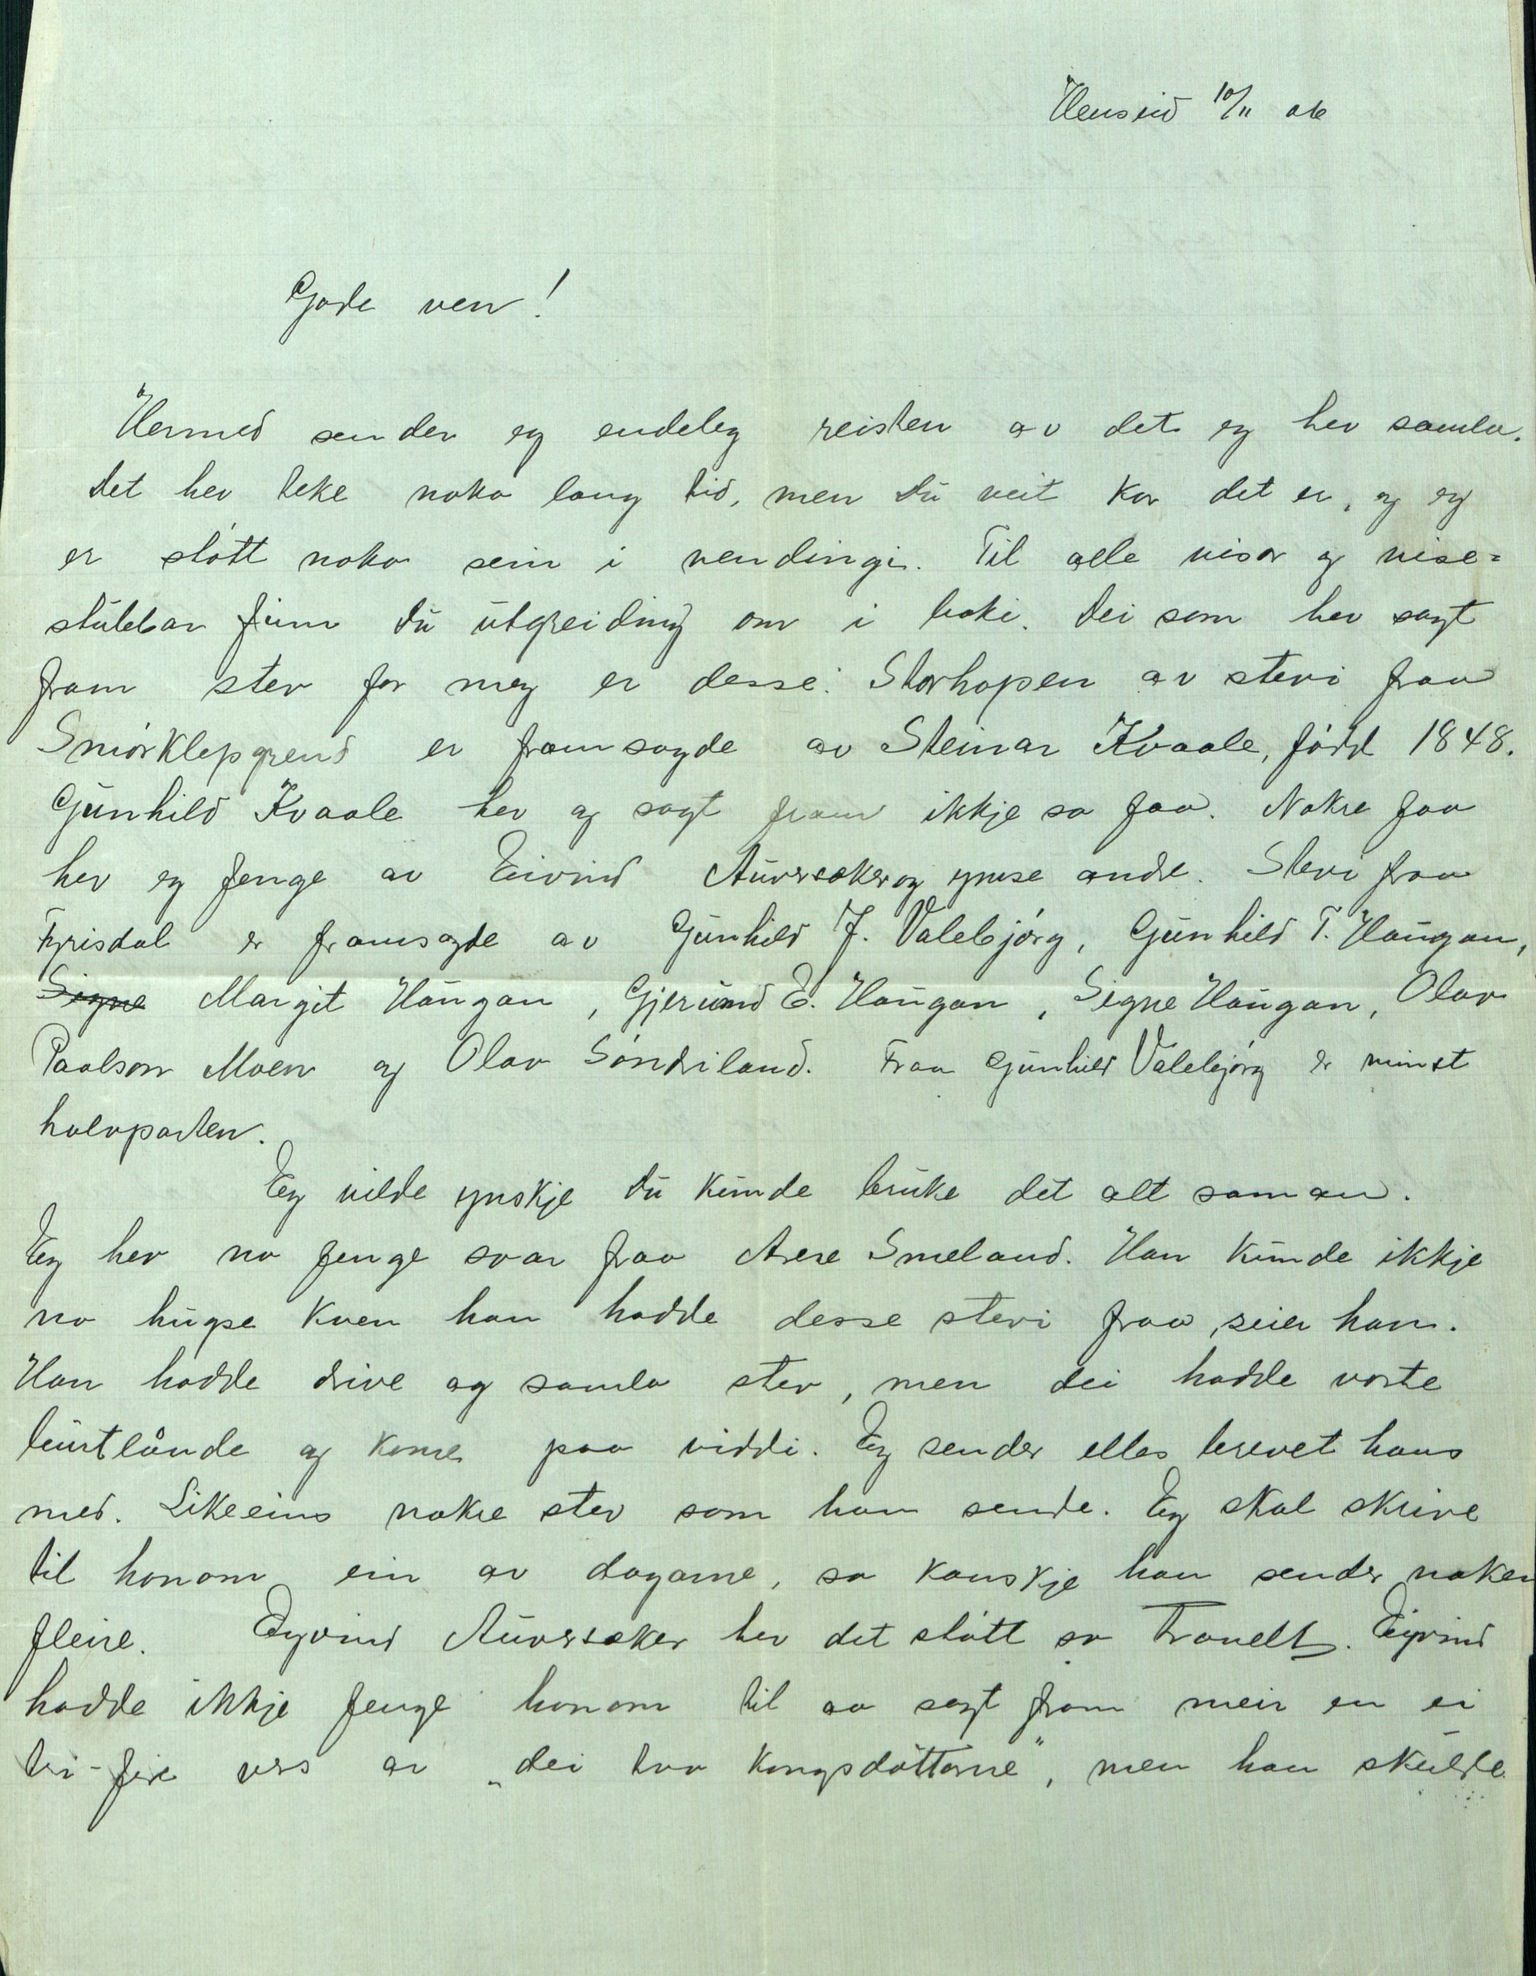 Henseid 10/11 06
Gode ven!
Hermed sender eg endeleg reisten av det eg hev samla.
Det hev teke noko lang tid, men du veit kor det er, og eg
er stött noko sein i vendingi. Til alle visor og vise=
stubbar finn du utgreiding om i boki. Dei som hev sagt
fram stev for meg er desse: Storhopen av stevi fraa
Smörklepgrend er framsagde av Steinar Kvaale, född 1848.
Gunhild Kvaale hev og sagt fram ikkje so faa. Nokre faa
hev eg fenge av Eivind Auversaker og ymse andre. Stevi fraa
Fyrisdal er framsagde av Gunhild J. Valebjörg, Gunhild T. Haugan,
Signe Margit Haugan, Gjerund E. Haugan, Signe Haugan, Olav
Paalson Moen og Olav Söndriland. Fraa Gunhild Valebjörg er minst
halvparten.
Eg vilde ynskje du kunde bruke det alt saman.
Eg hev no fenge svar fraa Arne Smeland. Han kunde ikkje
no hugse kven han hadde desse stevi fraa, seier han.
Han hadde drive og samla stev, men dei hadde vorte
burtlånde og kome paa viddi. Eg sender elles brevet hans
med. Likeeins nokre stev som han sende. Eg skal skrive
til honom ein av dagarne, so kanskje han sender noken
fleire. Eyvind Auversaker hev det stött so Travelt. Eyvind
hadde ikkje fenge honom til aa sagt fram meir en ei
tri-fire vers av „dei tvo kongsdöttarne", men han skulde